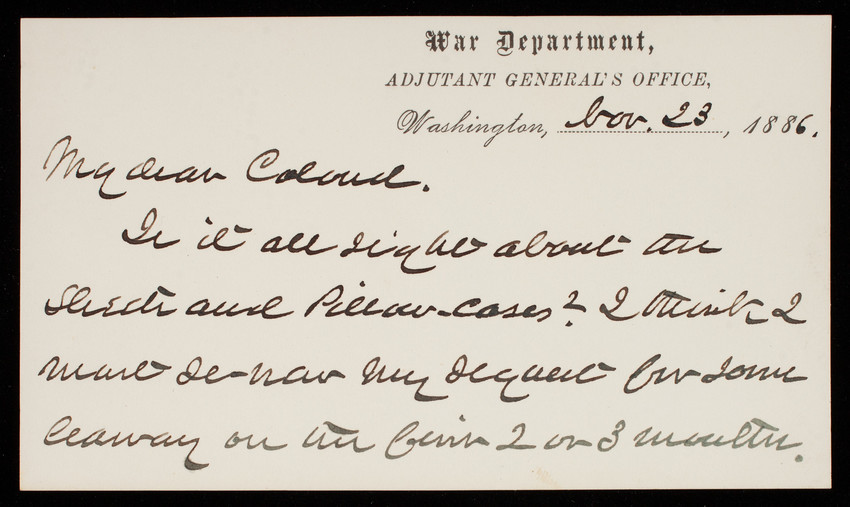 War Department,
ADJUTANT GENERAL'S OFFICE,
Washington, Nov. 23, 1886.
My dear Colonel.
Is it all right about the
Sheets and Pillow-cases? I think I
must re-new my request for some
leaway on the first 2 or 3 months.